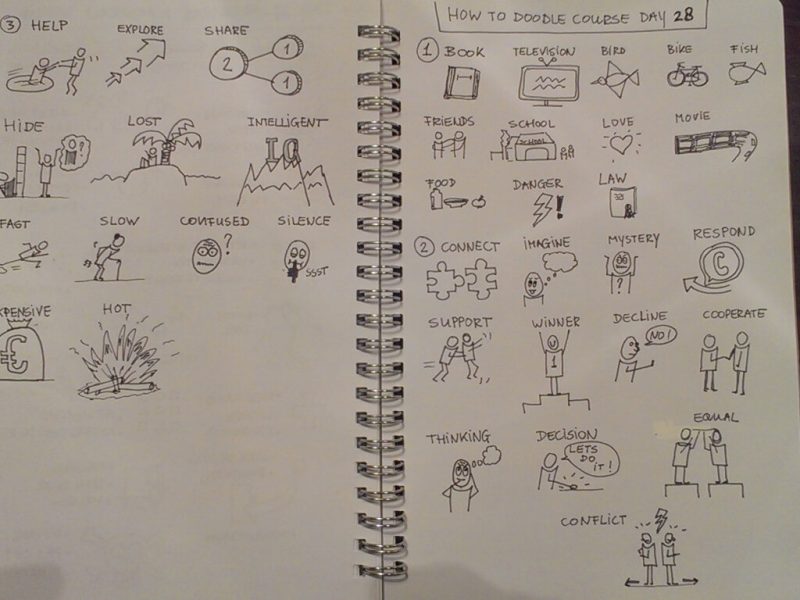 ③ HELP
EXPLORE
SHARE
2
1
1
HIDE
?
LOST
INTELLIGENT
IQ
FAST
SLOW
CONFUSED
?
SILENCE
SSST
XPENSIVE
€
HOT
HOW TO DOODLE COURSE DAY 28
① BOOK
TELEVISION
BIRD
BIKE
FISH
FRIENDS
SCHOOL
SCHOOL
LOVE
MOVIE
FOOD
DANGER
!
LAW
② CONNECT
IMAGINE
MYSTERY
?
RESPOND
SUPPORT
WINNER
1
DECLINE
NO!
COOPERATE
THINKING
DECISION
LETS
DO
IT!
EQUAL
CONFLICT